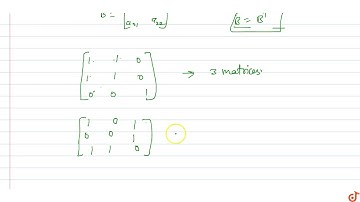 D = [a₂₁ a₂₂] B = B'
[1 1 0
1 1 0
0 0 1] → 3 matrices.
[1 0 1
0 0 1
1 1 0]